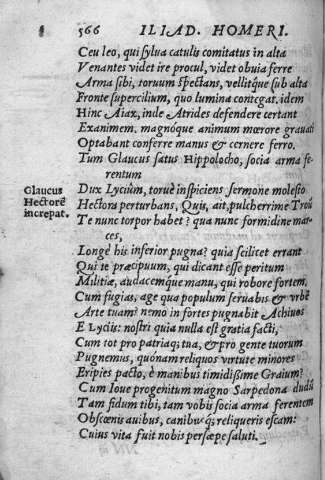 566 ILIAD. HOMERI.
Ceu leo, qui sylua catulis comitatus in alta
Venantes videt ire procul, videt obuia ferre
Arma sibi, toruum spectans, vellitq́ue sub alta
Fronte supercilium, quo lumina contegat. idem
Hinc Aiax, inde Atrides defendere certant
Exanimem, magnóque animum mœrore grauati
Optabant conferre manus & cernere ferro.
Tum Glaucus satus Hippolocho, socia arma ferentum
Glaucus
Hectorē
increpat.
Dux Lyciûm, toruè inspiciens sermone molesto
Hectora perturbans, Quis, ait, pulcherrime Troû
Te nunc torpor habet? qua nunc formidine marces,
Longè his inferior pugna? quia scilicet errant
Qui te præcipuum, qui dicant esse peritum
Militiæ, audacemque manu, qui robore fortem,
Cum fugias, age qua populum seruabis & vrbē
Arte tuam? nemo in fortes pugnabit Achiuos
E Lyciis: nostri quia nulla est gratia facti,
Cum tot pro patriaq; tua, & pro gente tuorum
Pugnemus, quónam reliquos virtute minores
Eripies pacto, è manibus timidissime Graium?
Cum Ioue progenitum magno Sarpedona dudū
Tam fidum tibi, tam vobis socia arma ferentem
Obscœnis auibus, canibusq́; reliqueris escam:
Cuius vita fuit nobis persæpe saluti.